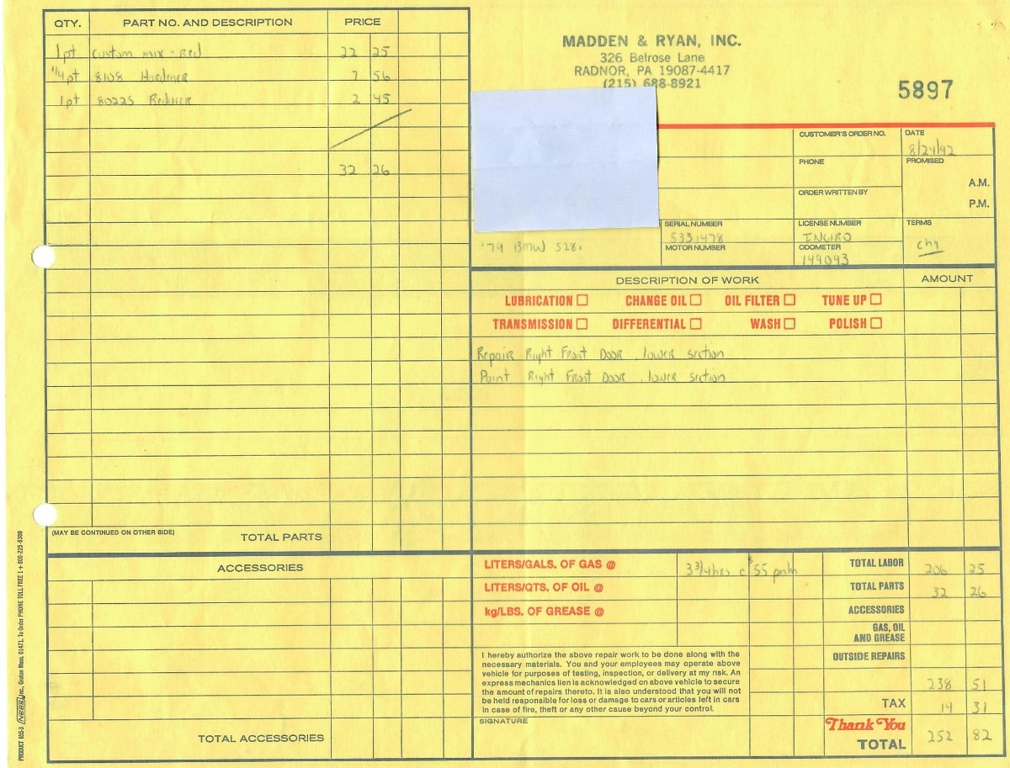 QTY. PART NO. AND DESCRIPTION PRICE
1pt Custom mix - Red 22 25
1/4pt 8108 Hardener 7 56
1pt 80225 Reducer 2 45
32 26
(MAY BE CONTINUED ON OTHER SIDE) TOTAL PARTS
ACCESSORIES
TOTAL ACCESSORIES
MADDEN & RYAN, INC.
326 Belrose Lane
RADNOR, PA 19087-4417
(215) 688-8921
5897
CUSTOMER'S ORDER NO. DATE
8/24/92
PHONE PROMISED
A.M.
ORDER WRITTEN BY
P.M.
SERIAL NUMBER LICENSE NUMBER TERMS
5331478 chg
'79 BMW 528i MOTOR NUMBER ODOMETER
149093
DESCRIPTION OF WORK AMOUNT
LUBRICATION CHANGE OIL OIL FILTER TUNE UP
TRANSMISSION DIFFERENTIAL WASH POLISH
Repair Right Front Door, lower section
Paint Right Front Door, lower section
LITERS/GALS. OF GAS @ 3 3/4 hrs c $55 TOTAL LABOR 206 25
LITERS/QTS. OF OIL @ TOTAL PARTS 32 26
kg/LBS. OF GREASE @ ACCESSORIES
GAS, OIL
AND GREASE
OUTSIDE REPAIRS
I hereby authorize the above repair work to be done along with the
necessary materials. You and your employees may operate above
vehicle for purposes of testing, inspection, or delivery at my risk. An
express mechanics lien is acknowledged on above vehicle to secure
the amount of repairs thereto. It is also understood that you will not
be held responsible for loss or damage to cars or articles left in cars
in case of fire, theft or any other cause beyond your control.
238 51
TAX 14 31
SIGNATURE
Thank You
TOTAL 252 82
PRODUCT 655-3 Inc., Groton, Mass. 01471. To Order PHONE TOLL FREE 1 + 800-225-6380